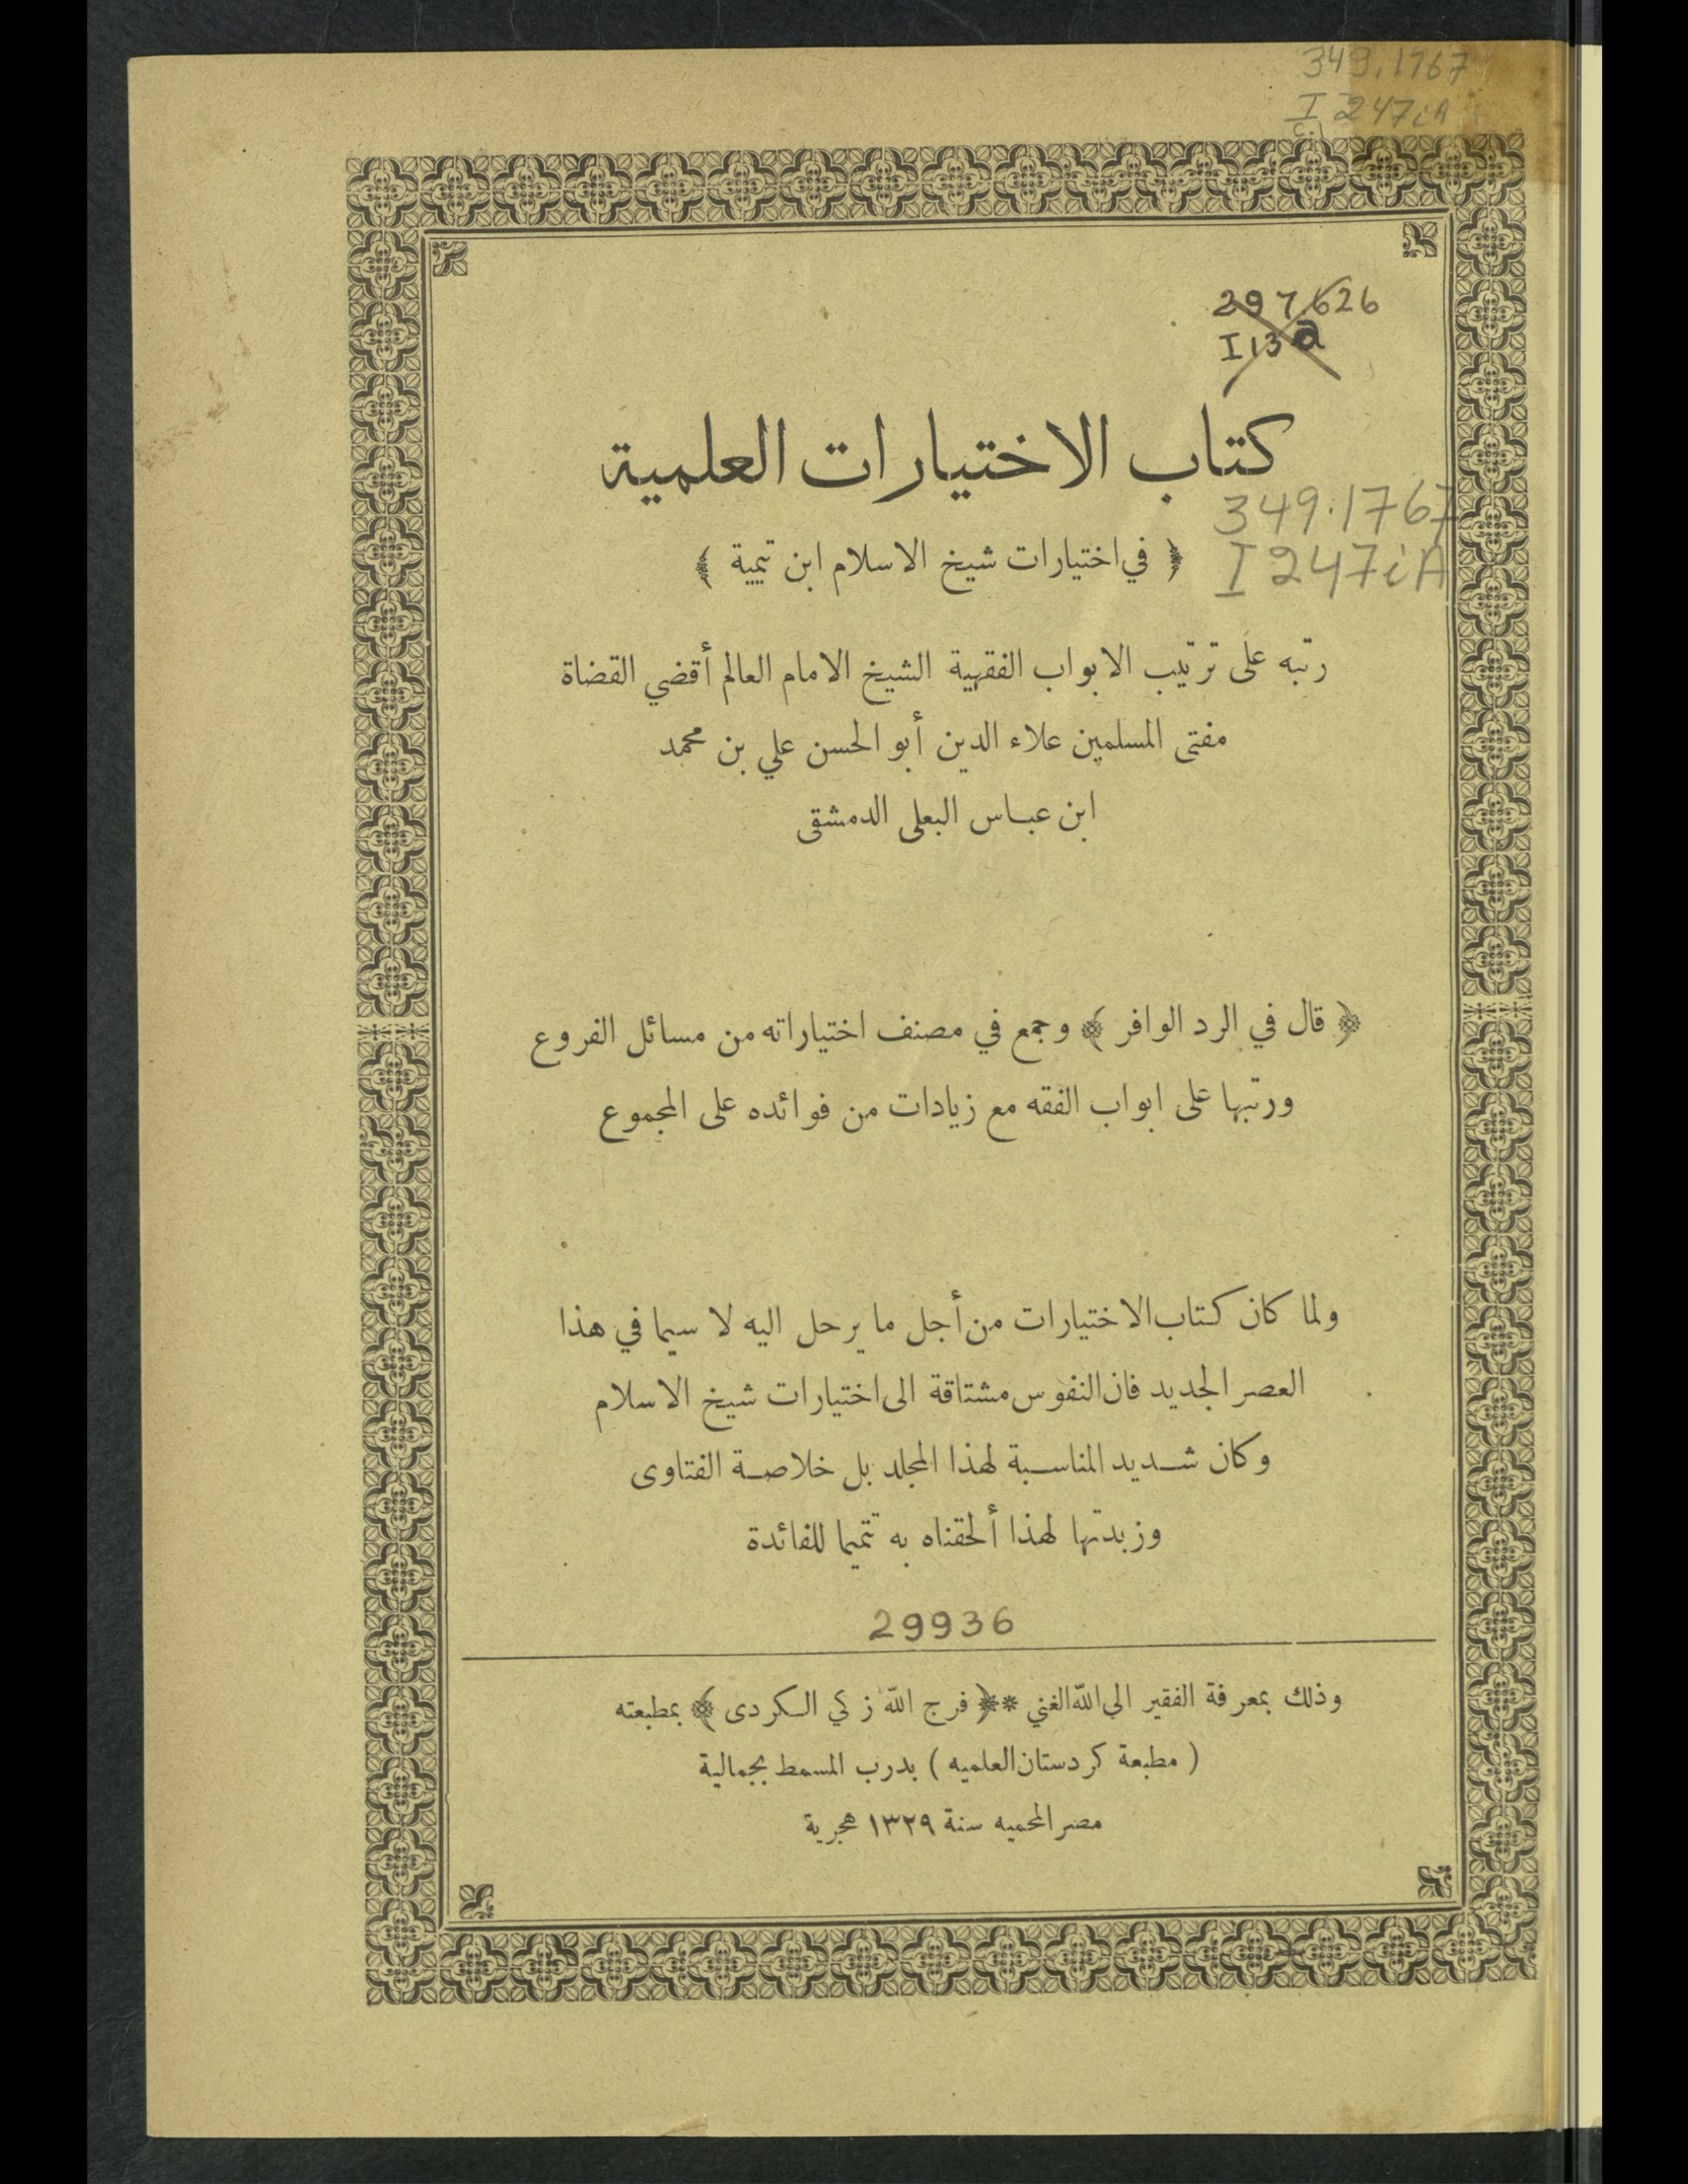 349.1767
I 247iA
c.1
297.626
I13a
كتاب الاختيارات العلمية
349.1767
I 247iA
﴿ في اختيارات شيخ الاسلام ابن تيمية ﴾
رتبه على ترتيب الابواب الفقهية الشيخ الامام العالم أقضي القضاة
مفتى المسلمين علاء الدين أبو الحسن علي بن محمد
ابن عباس البعلى الدمشقى
﴿ قال في الرد الوافر ﴾ وجمع في مصنف اختياراته من مسائل الفروع
ورتبها على ابواب الفقه مع زيادات من فوائده على المجموع
ولما كان كتاب الاختيارات من أجل ما يرحل اليه لا سيما في هذا
العصر الجديد فان النفوس مشتاقة الى اختيارات شيخ الاسلام
وكان شديد المناسبة لهذا المجلد بل خلاصة الفتاوى
وزبدتها لهذا ألحقناه به تتميما للفائدة
29936
وذلك بمعرفة الفقير الى الله الغني *﴿ فرج الله زكي الكردى ﴾ بمطبعته
( مطبعة كردستان العلميه ) بدرب المسمط بجمالية
مصر المحميه سنة ١٣٢٩ هجرية